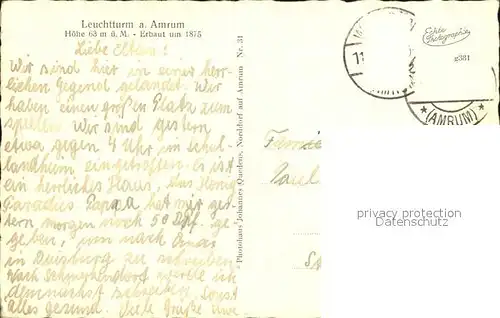 Leuchtturm a. Amrum
Höhe 63 m ü. M. - Erbaut um 1875
Liebe Eltern!
Wir sind hier in einer herr-
lichen Gegend gelandet. Wir
haben einen großen Platz zum
spielen. Wir sind gestern
etwa gegen 4 Uhr im Schul-
landheim eingetroffen. Es ist
ein herrliches Haus, das Honig
paradies. Pappa hat mir ges-
tern morgen noch 50 Dpf. ge-
geben, um nach Omas
in Duisburg zu schreiben.
Nach werde ich
demnächst schreiben. Sonst
alles gesund. Viele Grüße
Photohaus Johannes Quedens, Norddorf auf Amrum Nr. 31
Echte Photographie
(AMRUM)
Familie
Paul
privacy protection
www.ansichtskarten-lexikon.de